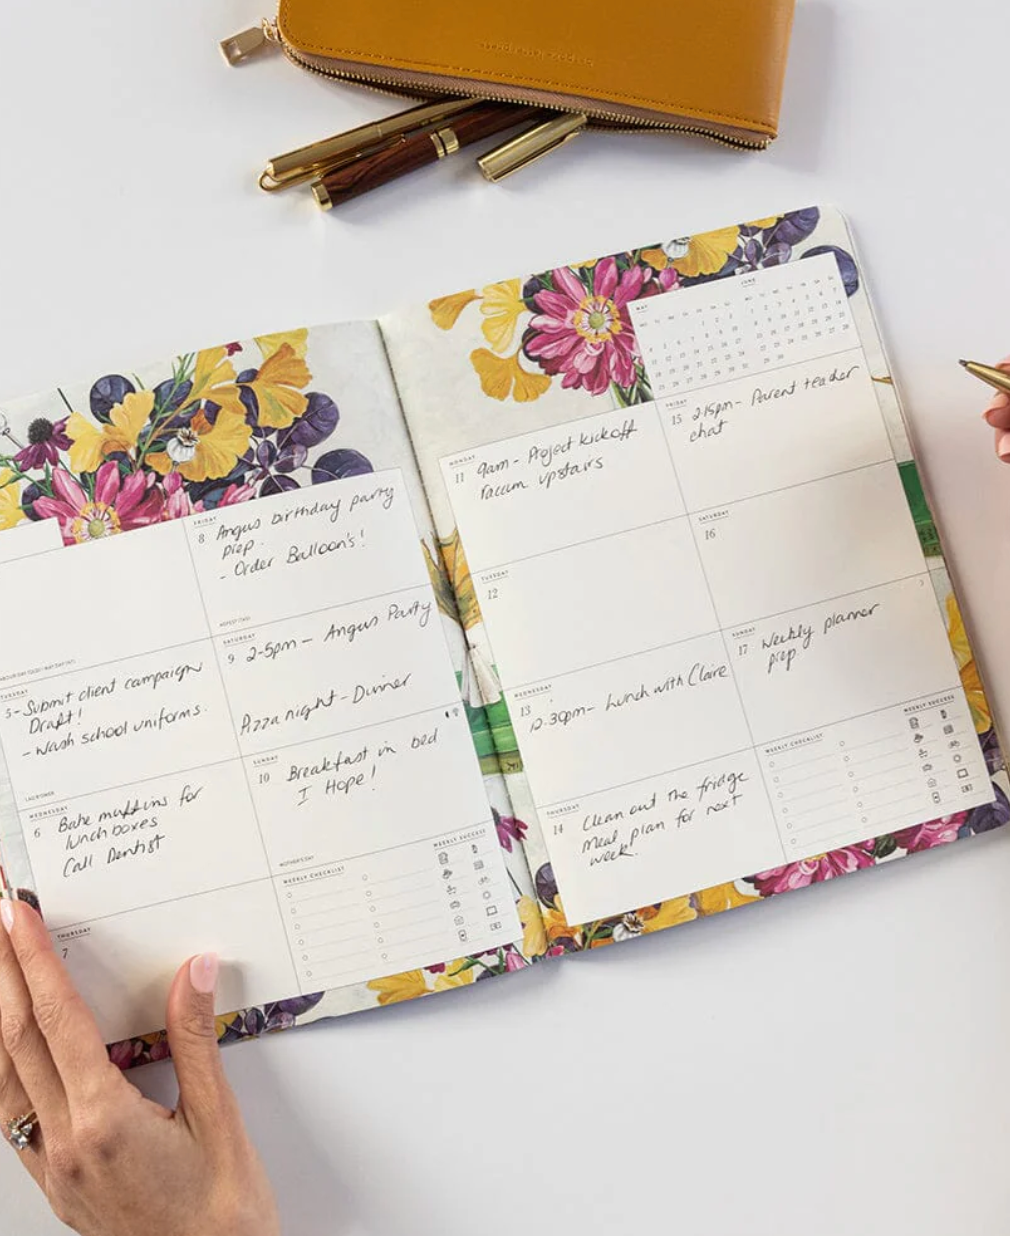 FRIDAY
8 Angus birthday party
prep.
- Order Balloon's!
TUESDAY
5 - Submit client campaign
Draft!
- Wash school uniforms.
SATURDAY
9 2-5pm - Angus Party
Pizza night - Dinner
WEDNESDAY
6 Bake muffins for
lunch boxes
Call Dentist
SUNDAY
10 Breakfast in bed
I Hope!
MOTHER'S DAY
THURSDAY
7
WEEKLY CHECKLIST
WEEKLY SUCCESS
MAY
JUNE
MONDAY
11 9am - Project kickoff
vaccum upstairs
FRIDAY
15 2.15pm - Parent teacher
chat
TUESDAY
12
SATURDAY
16
WEDNESDAY
13
12.30pm - Lunch with Claire
SUNDAY
17 Weekly planner
prep
THURSDAY
14 Clean out the fridge
Meal plan for next
week.
WEEKLY CHECKLIST
WEEKLY SUCCESS